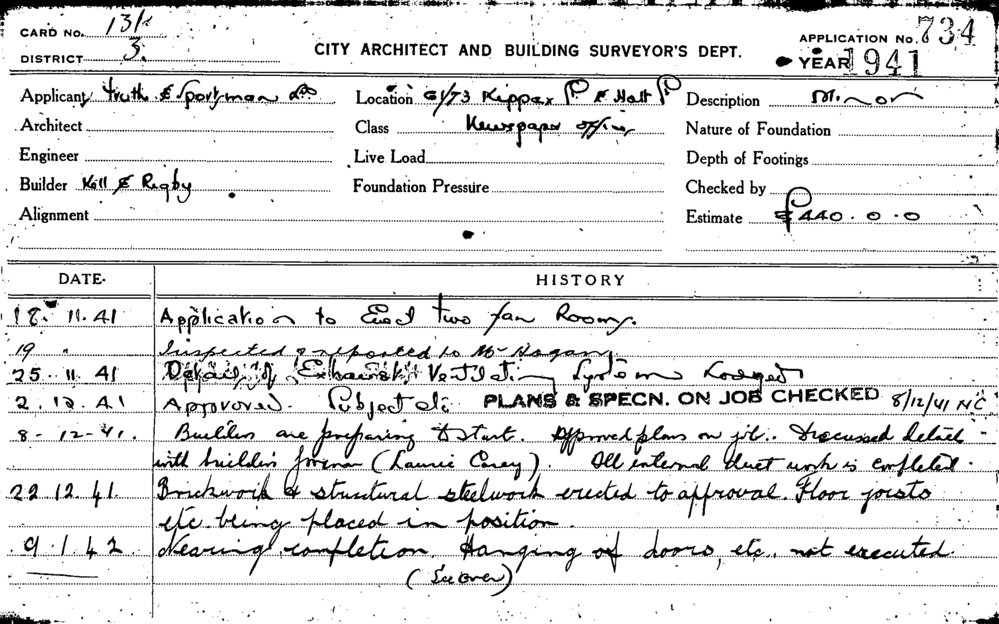 CARD No. 131
DISTRICT 3.
CITY ARCHITECT AND BUILDING SURVEYOR'S DEPT.
APPLICATION No. 734
YEAR 1941
Applicant Truth & Sportsman Ltd
Location 61/73 Kippax St & Holt St
Description Minor
Architect
Class Newspaper offices
Nature of Foundation
Engineer
Live Load
Depth of Footings
Builder Kell & Rigby
Foundation Pressure
Checked by
Alignment
Estimate £440.0.0
DATE.
HISTORY
18. 11. 41 Application to Erect two fan Rooms.
19 " Inspected & reported to Mr Hogan
25. 11. 41 Details of Exhaust Ventilating System Lodged
2. 12. 41 Approved. Subject etc PLANS & SPECN. ON JOB CHECKED 8/12/41 NC
8-12-41. Builders are preparing to start. Approved plans on job. Discussed details
with builders foreman (Laurie Carey). All internal duct work is completed.
22.12.41. Brickwork & structural steelwork erected to approval. Floor joists
etc. being placed in position.
9.1.42 Nearing completion. Hanging of doors, etc. not executed
(See over)